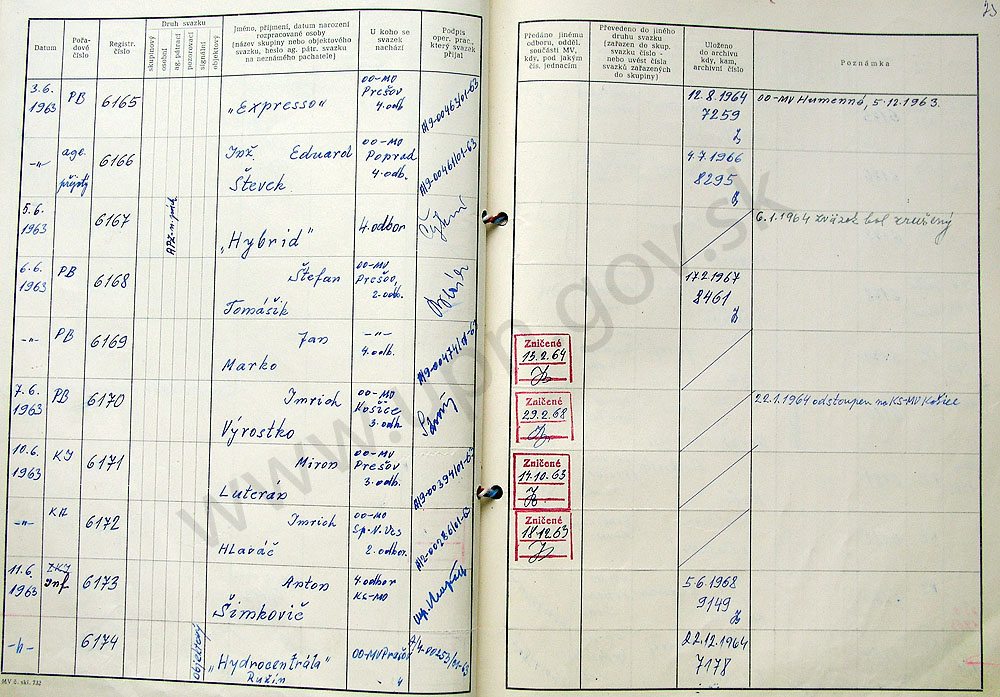 23
Datum
Pořa-
dové
číslo
Registr.
číslo
Druh svazku
skupinový
osobní
ag. pátrací
pozorovací
signální
objektový
Jméno, příjmení, datum narození
rozpracované osoby
(název skupiny nebo objektového
svazku, heslo ag. pátr. svazku
na neznámého pachatele)
U koho se
svazek
nachází
Podpis
oper. prac.,
který svazek
přijal
Předáno jinému
odboru, odděl.
součásti MV,
kdy, pod jakým
čís. jednacím
Převedeno do jiného
druhu svazku
(zařazen do skup.
svazku číslo -
nebo uvést čísla
svazků zařazených
do skupiny)
Uloženo
do archivu
kdy, kam,
archivní číslo
Poznámka
3.6.
1963
PB
6165
„Expresso"
OO-MV
Prešov
4. odb.
A/9-00463/01-63
12.8.1964
7259
OO-MV Humenné, 5.12.1963.
-„-
age.
prijatý
6166
Inž. Eduard
Števek
OO-MO
Poprad
4. odb.
A/9-00461/01-63
4.7.1966
8295
5.6.
1963
6167
„Hybrid"
4. odbor
6.1.1964 zväzok bol zrušený
6.6.
1963
PB
6168
Štefan
Tomášik
OO-MV
Prešov,
2. odb.
17.2.1967
8461
-„-
PB
6169
Jan
Marko
-„-
4. odb.
A/9-00474/01-63
Zničené
13.2.64
7.6.
1963
PB
6170
Imrich
Výrostko
OO-MO
Košice
3. odb.
Zničené
29.2.68
22.1.1964 odstoupen na KS-MV Košice
10.6.
1963
KJ
6171
Miron
Luterán
OO-MO
Prešov
3. odb.
A/9-00394/01-63
Zničené
14.10.63
-„-
6172
Imrich
Hlaváč
OO-MO
Sp.N.Ves
2. odbor.
A/2-00286/01-63
Zničené
18.12.63
11.6.
1963
Inf
6173
Anton
Šimkovič
4. odbor
KS-MO
5.6.1968
9149
6174
objektový
„Hydrocentrála"
Ružín
A/4-00253/01-63
22.12.1964
7178
MV č. skl. 732
www.upn.gov.sk